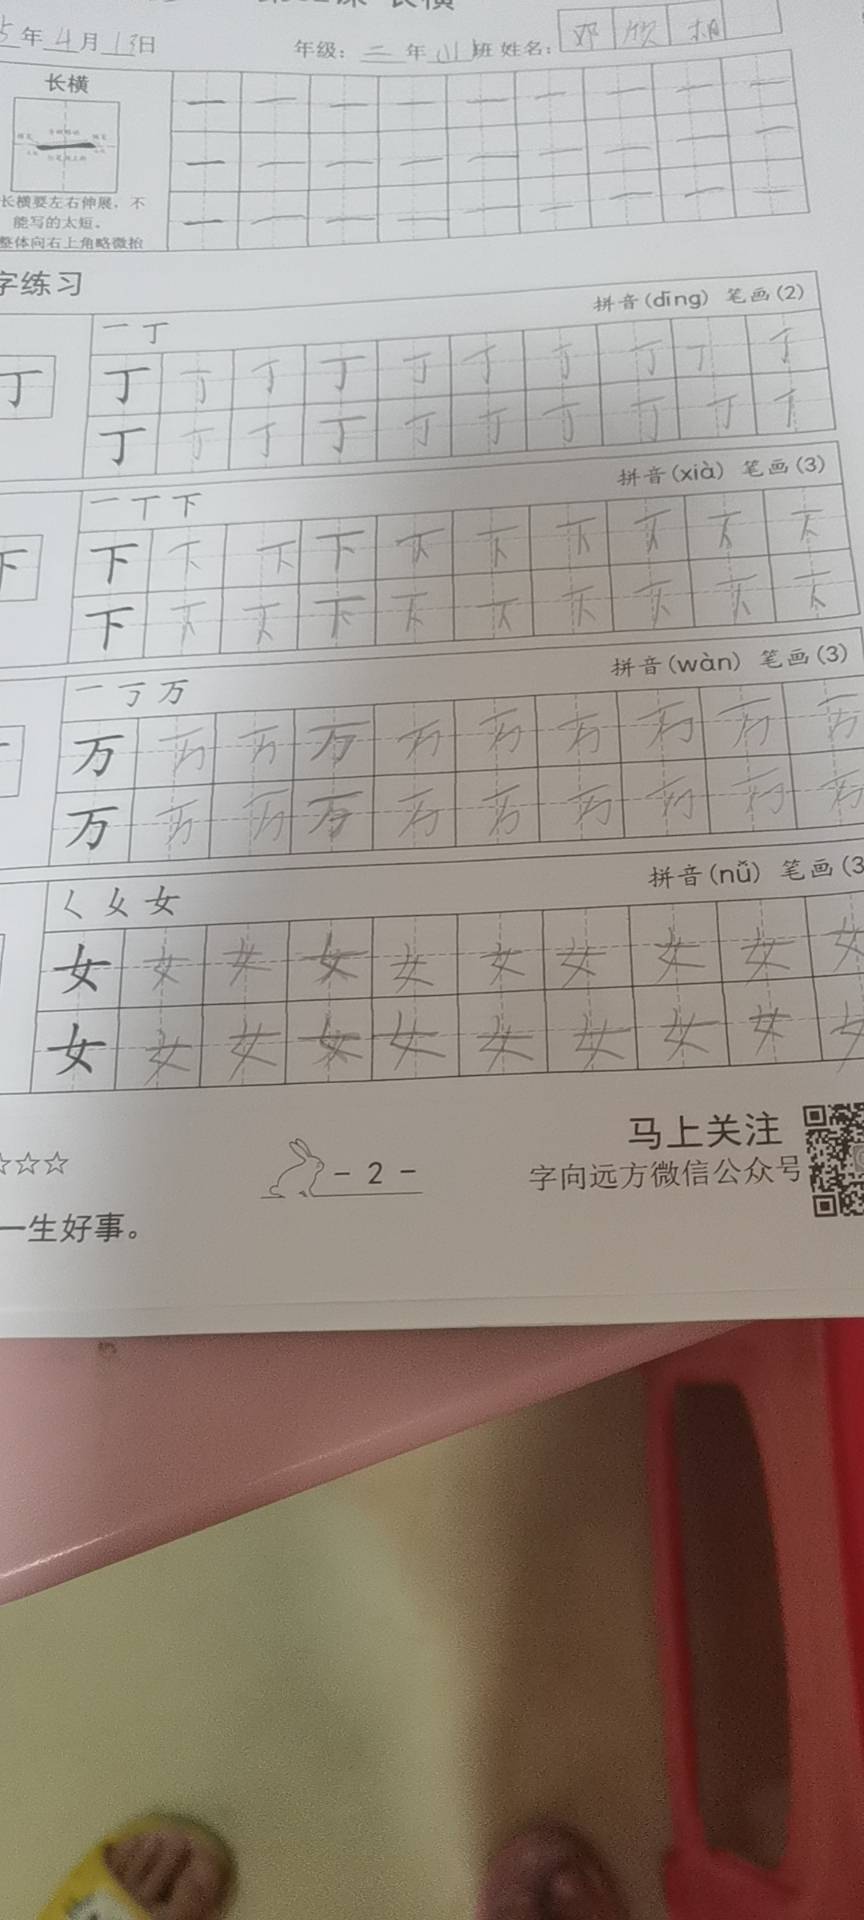 5年4月13日 年级：二年(1)班 姓名：邓欣
长横
一 一 一 一 一 一 一 一 一
一 一 一 一 一 一 一 一 一
一 一 一 一 一 一 一 一 一
长横要左右伸展，不
能写的太短。
整体向右上角略微抬
字练习
拼音(dīng) 笔画(2)
一 丁
丁 丁 丁 丁 丁 丁 丁 丁 丁 丁 丁
丁 丁 丁 丁 丁 丁 丁 丁 丁 丁
拼音(xià) 笔画(3)
一 丅 下
下 下 下 下 下 下 下 下 下 下 下
下 下 下 下 下 下 下 下 下 下
拼音(wàn) 笔画(3)
一 丆 万
万 万 万 万 万 万 万 万 万 万
万 万 万 万 万 万 万 万 万 万
拼音(nǚ) 笔画(3
く 乆 女
女 女 女 女 女 女 女 女 女 女
女 女 女 女 女 女 女 女 女 女
☆☆☆
- 2 -
马上关注
字向远方微信公众号
一生好事。